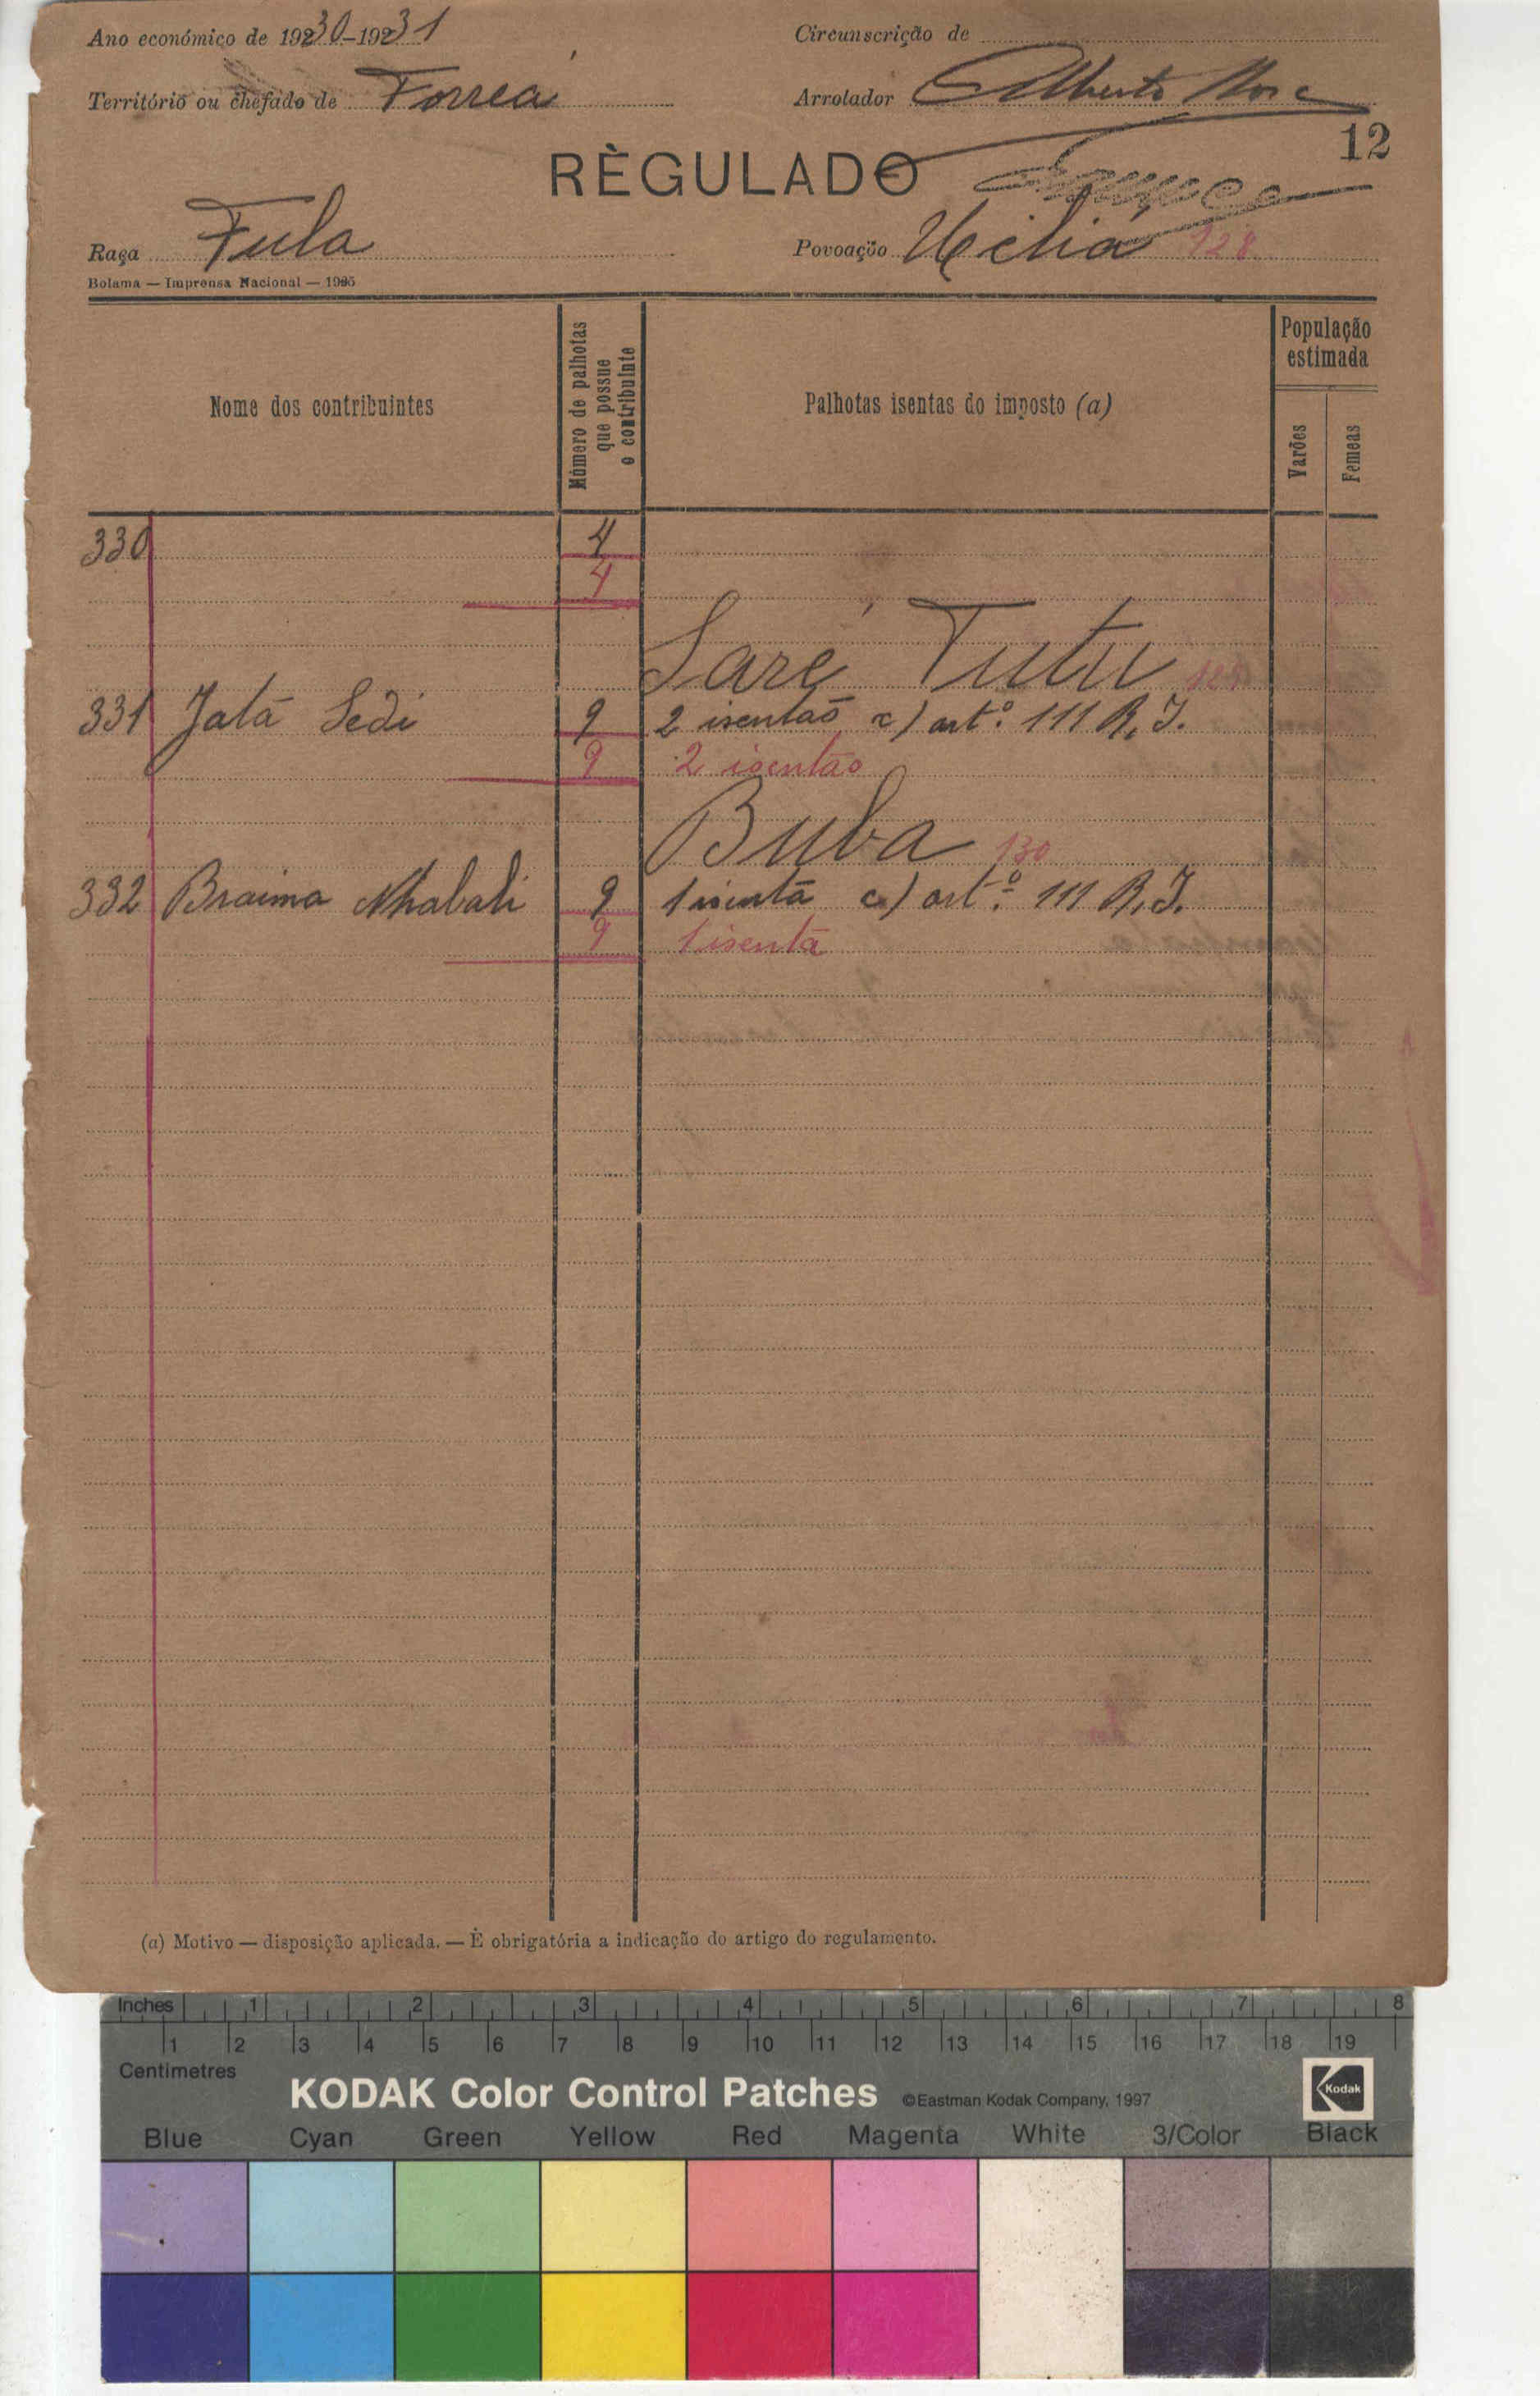 Ano económico de 1930-1931
Circunscrição de
Território ou chefado de Forreá
Arrolador Alberto
12
RÈGULADO
Raça Fula
Povoação 128
Bolama — Imprensa Nacional — 1925
Nome dos contribuintes
Número de palhotas que possue o contribuinte
Palhotas isentas do imposto (a)
População estimada
Varões
Femeas
330 4
4
Saré Tutu
331 Jatá Sedi 9 2 isentas c) artº. 111 R. I.
9 2 isentas
Buba 130
332 Braima Nhabali 9 1 isenta c) artº. 111 R. I.
9 1 isenta
(a) Motivo — disposição aplicada. — É obrigatória a indicação do artigo do regulamento.
Inches 1 2 3 4 5 6 7 8
1 2 3 4 5 6 7 8 9 10 11 12 13 14 15 16 17 18 19
Centimetres
KODAK Color Control Patches ©Eastman Kodak Company, 1997 Kodak
Blue Cyan Green Yellow Red Magenta White 3/Color Black